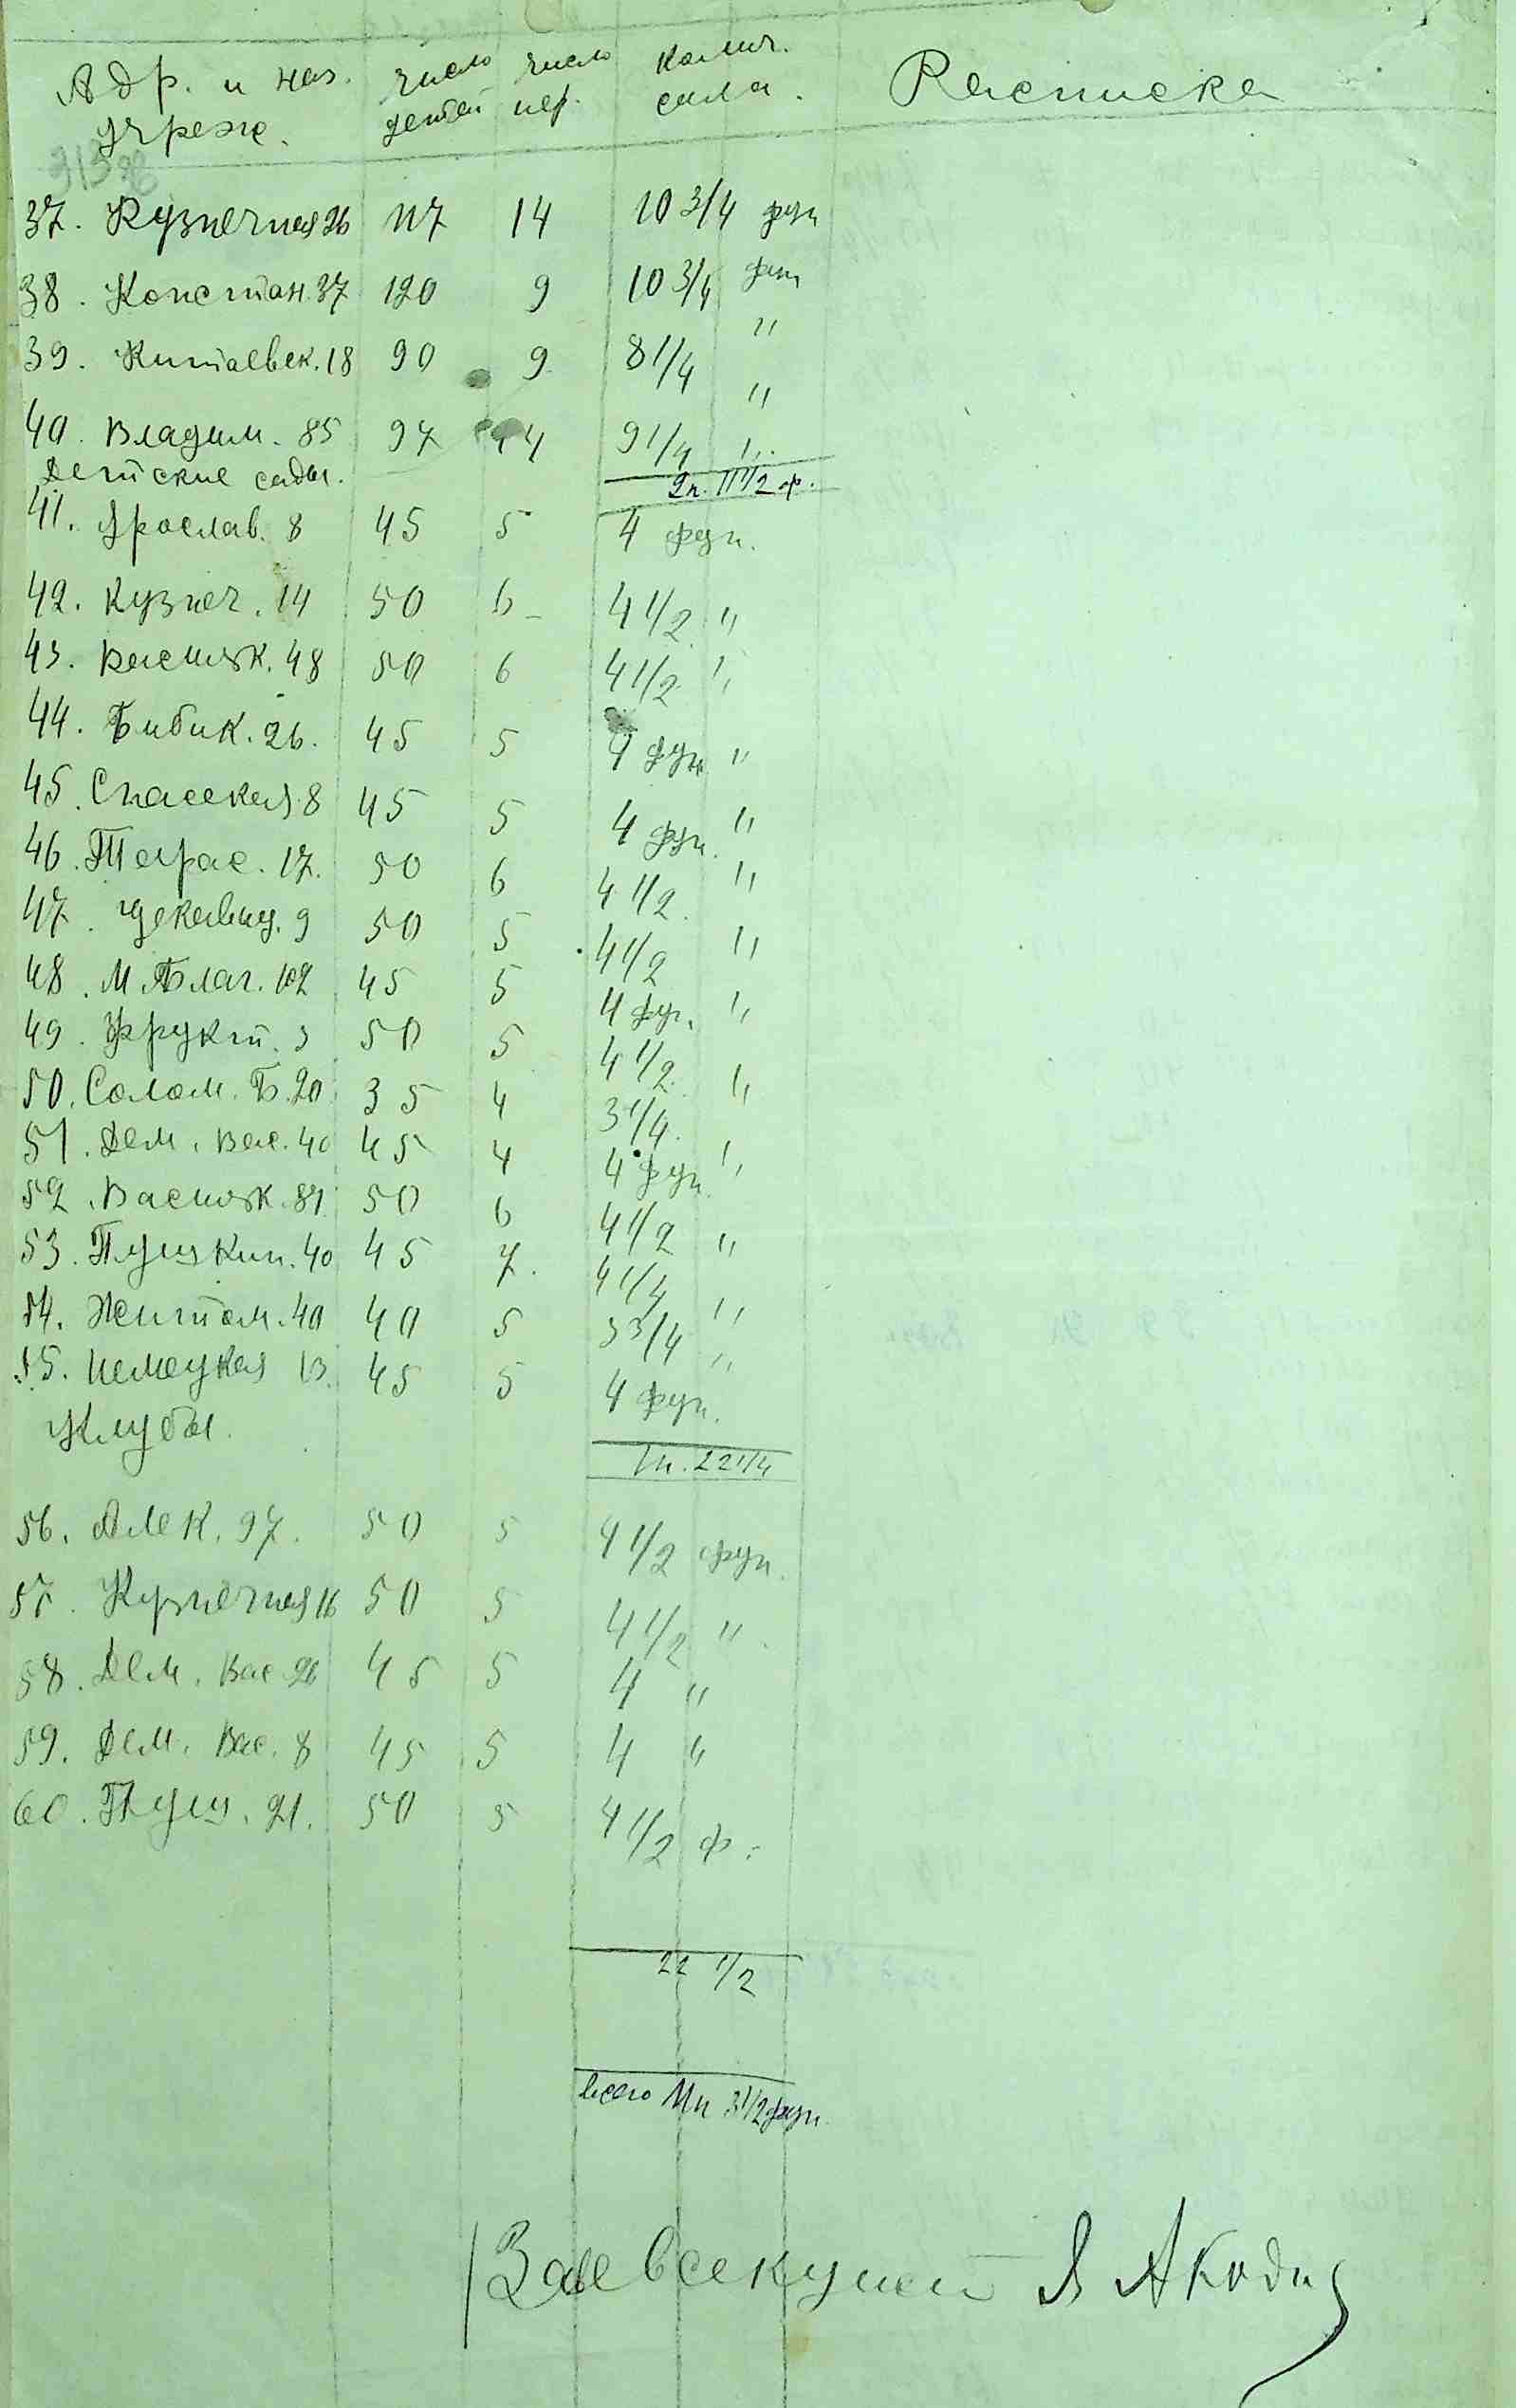 Адр. и наз. число число колич. Расписка
учреж. детей пер. сала.
37. Кузнечная 26 117 14 10 3/4 фун
38. Констан. 37 120 9 10 3/4 фун
39. Китаевск. 18 90 9 8 1/4 "
40. Владим. 85 97 14 9 1/4 "
Детские сады. 2п. 11 1/2 ф.
41. Ярослав. 8 45 5 4 фун.
42. Кузнеч. 14 50 6 4 1/2 "
43. Васильк. 48 50 6 4 1/2 "
44. Бибик. 26. 45 5 4 фун "
45. Спасская 8 45 5 4 фун. "
46. Терас. 17. 50 6 4 1/2 "
47. Щекавиц. 9 50 5 4 1/2 "
48. М Благ. 102 45 5 4 фун. "
49. Фрукт. 3 50 5 4 1/2 "
50. Солом. Б. 20 35 4 3 1/4 "
51. Дем. Вас. 40 45 4 4 фун. "
52. Васильк. 81 50 6 4 1/2 "
53. Пушкин. 40 45 7. 4 1/4 "
54. Житом. 40 40 5 3 3/4 "
55. Немецкая 13. 45 5 4 фун.
Клубы.
1п. 22 1/4
56. Алек. 97. 50 5 4 1/2 фун.
57. Кузнечная 16 50 5 4 1/2 "
58. Дем. Вас. 26 45 5 4 "
59. Дем. Вас. 8 45 5 4 "
60. Пуш. 21. 50 5 4 1/2 ф.
22 1/2
Всего 11п 3 1/2 фун.
Зав